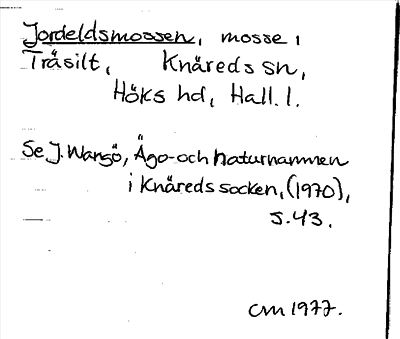 Jordeldsmossen, mosse i
Träsilt, Knäreds sn,
Höks hd, Hall. l.
Se J. Wangö, Ägo- och naturnamnen
i Knäreds socken, (1970),
s. 43.
CM 1977.